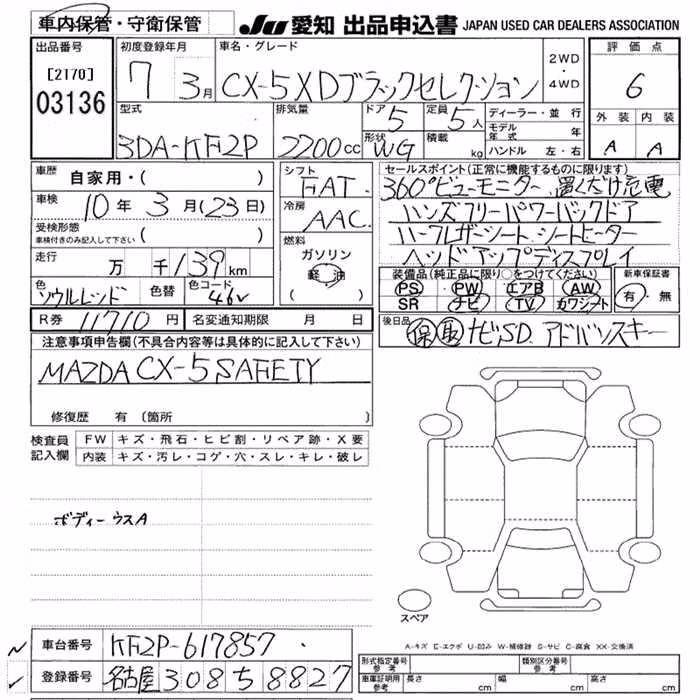 車内保管・守衛保管
JU 愛知 出品申込書 JAPAN USED CAR DEALERS ASSOCIATION
出品番号 初度登録年月 車名・グレード 評価点
[2170] 03136
7 3月 CX-5 XDブラックセレクション 2WD・4WD 6
型式 排気量 ドア 定員 ディーラー・並行 外装 内装
3DA-KF2P 2200cc 5 5人 モデル年式 年
形状 積載 ハンドル 左・右
WG kg A A
車歴 自家用・( ) シフト FAT
車検 10年3月(23日) 冷房 AAC
受検形態 車検付きのみ記入して下さい ( )
燃料 ガソリン 軽油 ( )
走行 万 千 139km
色 ソウルレッド 色替 色コード 46V
R券 11710円 名変通知期限 月 日
セールスポイント(正常に機能するものに限ります)
360°ビューモニター 置くだけ充電
ハンズフリーパワーバックドア
ハーフレザーシート.シートヒーター
ヘッドアップディスプレイ
装備品(純正品に限り○をつけてください) 新車保証書
PS PW エアB AW 有・無
SR ナビ TV カワシート
後日品 保 取 ナビSD. アドバンスキー
注意事項申告欄(不具合内容等は具体的に記入して下さい)
MAZDA CX-5 SAFETY
修復歴 有 (箇所 )
検査員記入欄 FW キズ・飛石・ヒビ割・リペア跡・X要
内装 キズ・汚レ・コゲ・穴・スレ・キレ・破レ
ボディーウスA
スペア
A-キズ E-エクボ U-凹み W-補修跡 S-サビ C-腐食 XX-交換済
車台番号 KF2P-617857
登録番号 名古屋 308 5 8827
形式指定番号 参考 類別区分番号 参考
車庫証明用 参考 長さ cm 幅 cm 高さ cm